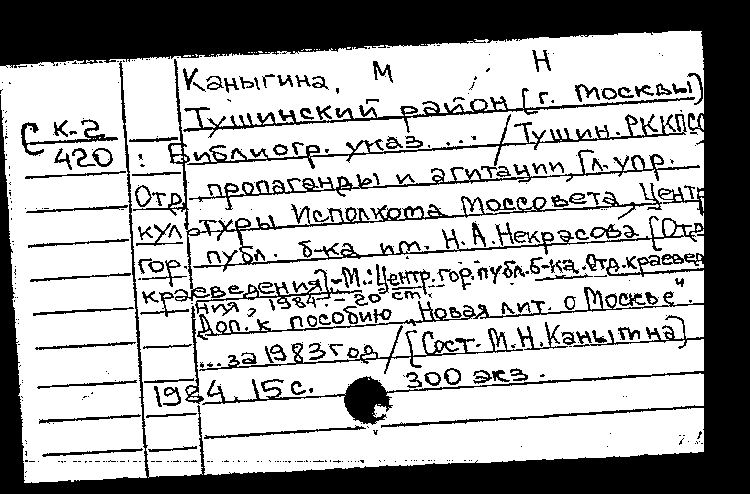 Каныгина, М Н
С К-2 Тушинский район [г. Москвы]
420 : Библиогр. указ. ... / Тушин. РК КПСС
Отд. пропаганды и агитации, Гл. упр.
культуры Исполкома Моссовета, Центр
гор. публ. б-ка им. Н.А.Некрасова [Отд
краеведения].-М.: Центр.гор.публ.б-ка.Отд.краевед
ния, 1984. - 20 см
Доп. к пособию „Новая лит. о Москве".
...за 1983 год / [Сост. М.Н.Каныгина]
1984. 15 с. 300 экз.